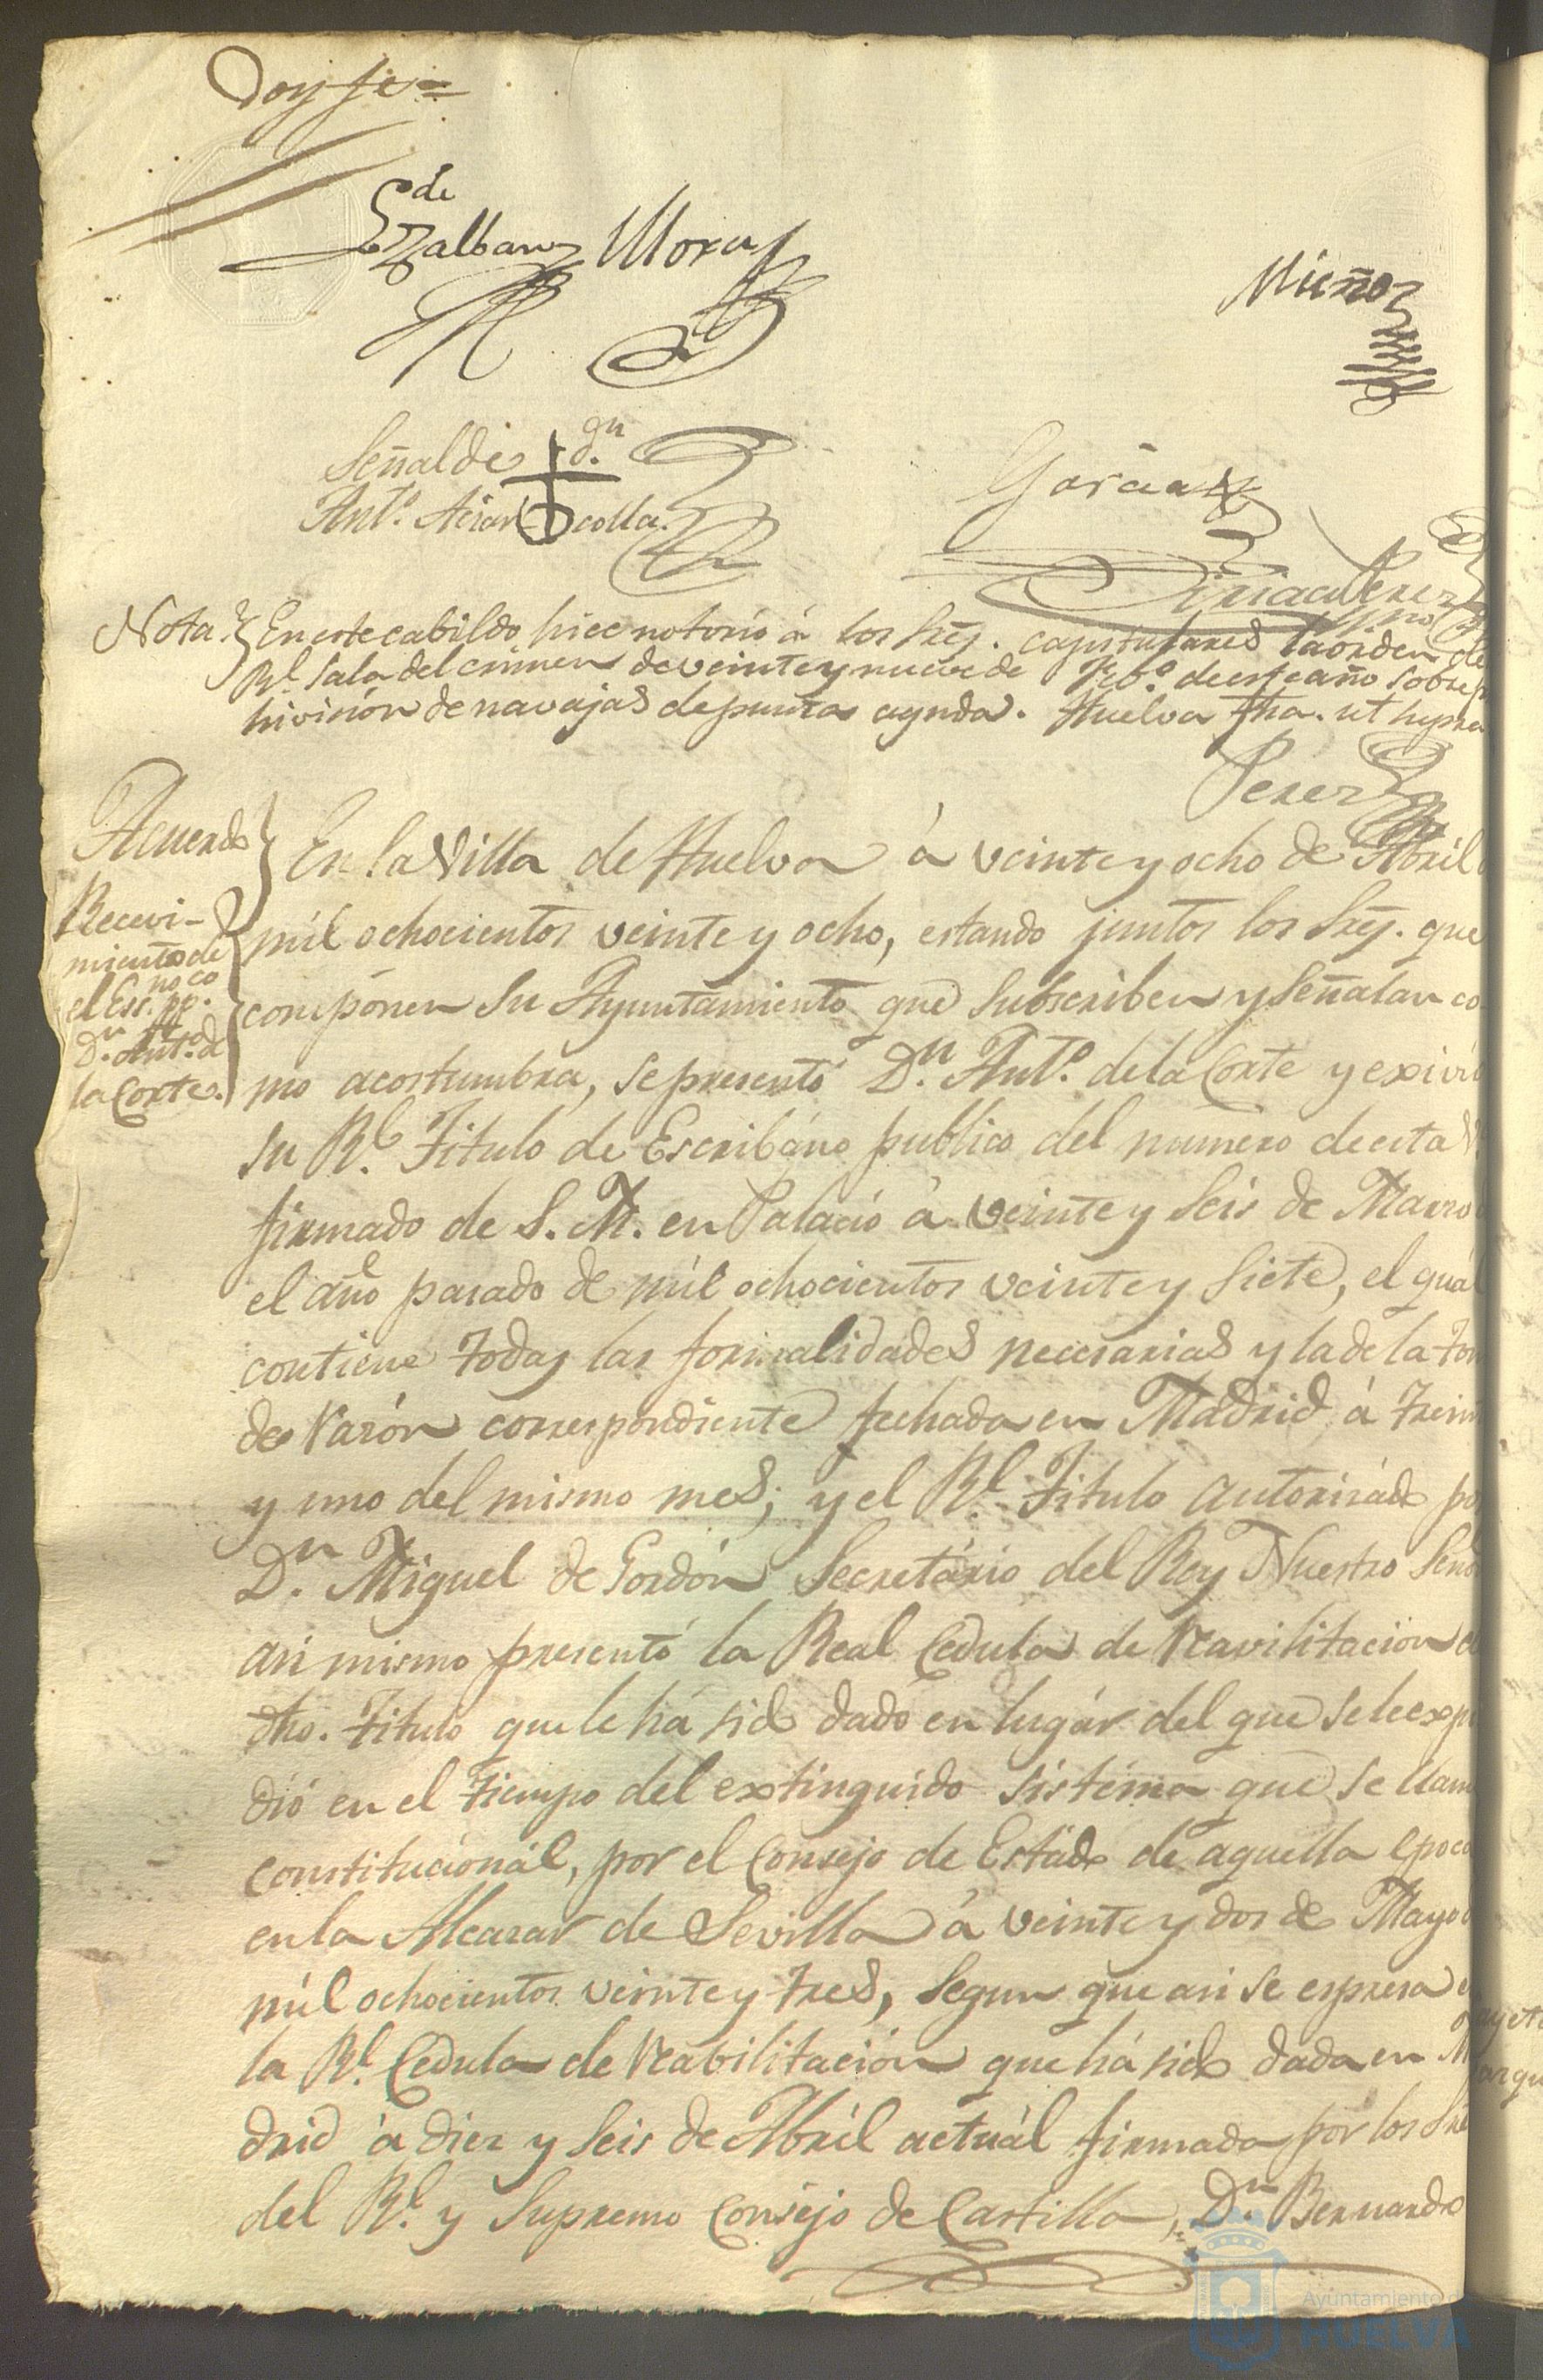 Doy fe=
de
Ezalbarn Mora
Muñoz
Señal de + d.n
Ant.o Arias colla.
Garcia
Ciriaco Perez
Nota. En este cabildo hice notorio á los Srs. capitulares la orden de
Rl. Sala del crimen de veinte y nueve de Feb.o de este año sobre p
hivición de navajas de punta aguda. Huelva fha. ut supra
Perez
Acuerdo
Recevi-
miento de
el Ess.no pp.co
D.n Ant.o de
la Corte.
En la Villa de Huelva á veinte y ocho de Abril
mil ochocientos veinte y ocho, estando juntos los Srs. que
componen su Ayuntamiento que subscriben y señalan co-
mo acostumbra, se presentó D.n Ant.o de la Corte y exivió
su Rl. Titulo de Escribano publico del numero de esta V.
firmado de S. M. en Palacio á veinte y seis de Marzo
el año pasado de mil ochocientos veinte y siete, el qual
contiene todas las formalidades necesarias y la de la tom
de razón correspondiente fechada en Madrid á trein
y uno del mismo mes; y el Rl. Titulo autorizado po
D.n Miguel de Gordón Secretário del Rey Nuestro Seño
asi mismo presentó la Real Cedula de reavilitacion
dho. Titulo que le há sido dado en lugár del que se le expi
dió en el tiempo del extinguido sistéma que se llam
constitucionál, por el Consejo de Estado de aquella epoca
en la Alcazar de Sevilla á veinte y dos de Mayo
mil ochocientos veinte y tres, segun que asi se espresa e
la Rl. Cedula de reabilitación que há sido dada en M
drid á diez y seis de Abril actuál firmada por los Sre
del Rl. y Supremo Consejo de Castilla, D.n Bernardo
Ayuntamiento
HUELVA